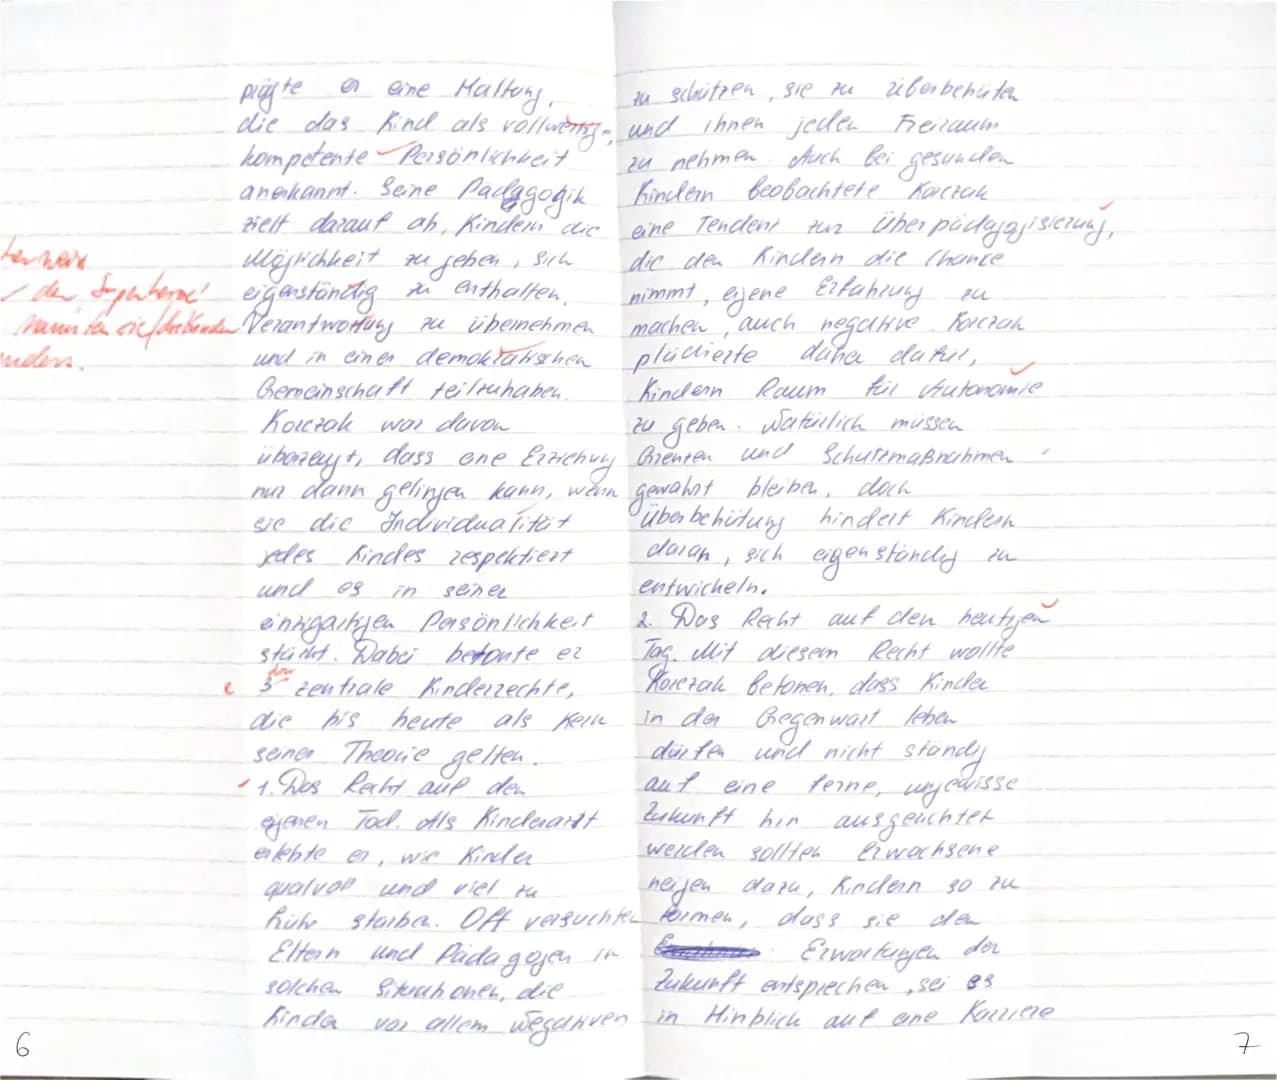 prägte er eine Haltung,
die das Kind als vollwertige,
kompetente Persönlichkeit
anerkannt. Seine Pädagogik
zielt darauf ab, Kindern die
Möglichkeit zu geben, sich
eigenständig zu enthalten,
Verantwortung zu übernehmen
und in einer demokratischen
Gemeinschaft teilzuhaben.
Korczak war davon
überzeugt, dass eine Erziehung
nur dann gelingen kann, wenn
sie die Individualität
jedes Kindes respektiert
und es in seiner
einzigartigen Persönlichkeit
stärkt. Dabei betonte er
drei
3 zentrale Kinderrechte,
die bis heute als Kern
seiner Theorie gelten.
1. Das Recht auf den
eigenen Tod. Als Kinderarzt
erlebte er, wie Kinder
qualvoll und viel zu
früh starben. Oft versuchten
Eltern und Pädagogen in
solchen Situationen, die
Kinder vor allem Negativen
6
zu schützen, sie zu überbehüten
und ihnen jeden Freiraum
zu nehmen. Auch bei gesunden
Kindern beobachtete Korczak
eine Tendenz zur Überpädagogisierung,
die den Kindern die Chance
nimmt, eigene Erfahrung zu
machen, auch negative. Korczak
plädierte daher dafür,
Kindern Raum für Autonomie
zu geben. Natürlich müssen
Grenzen und Schutzmaßnahmen
gewahrt bleiben, doch
Überbehütung hindert Kindern
daran, sich eigenständig zu
entwickeln.
2. Das Recht auf den heutigen
Tag. Mit diesem Recht wollte
Korczak betonen, dass Kinder
in der Gegenwart leben
dürfen und nicht ständig
auf eine ferne, ungewisse
Zukunft hin ausgerichtet
werden sollten Erwachsene
neigen dazu, Kindern so zu
formen, dass sie den
Erwartungen der
Zukunft entsprechen, sei es
in Hinblick auf eine Karriere
7